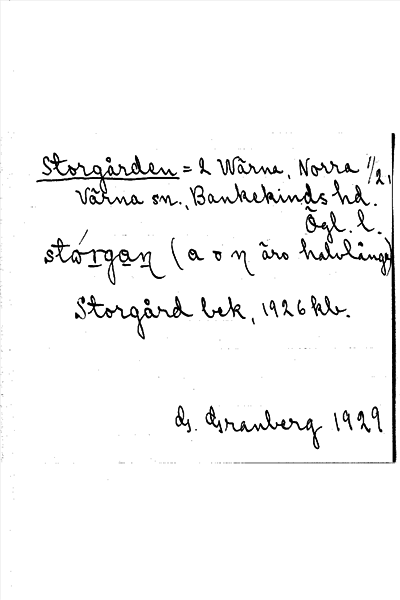 Storgården = 2 Wärna, Norra 1/2,
Värna sn., Bankekinds hd.
Ögl. l.
stώrgaη (a o η äro halvlånga)
Storgård bek, 1926 kb.
G. Granberg 1929